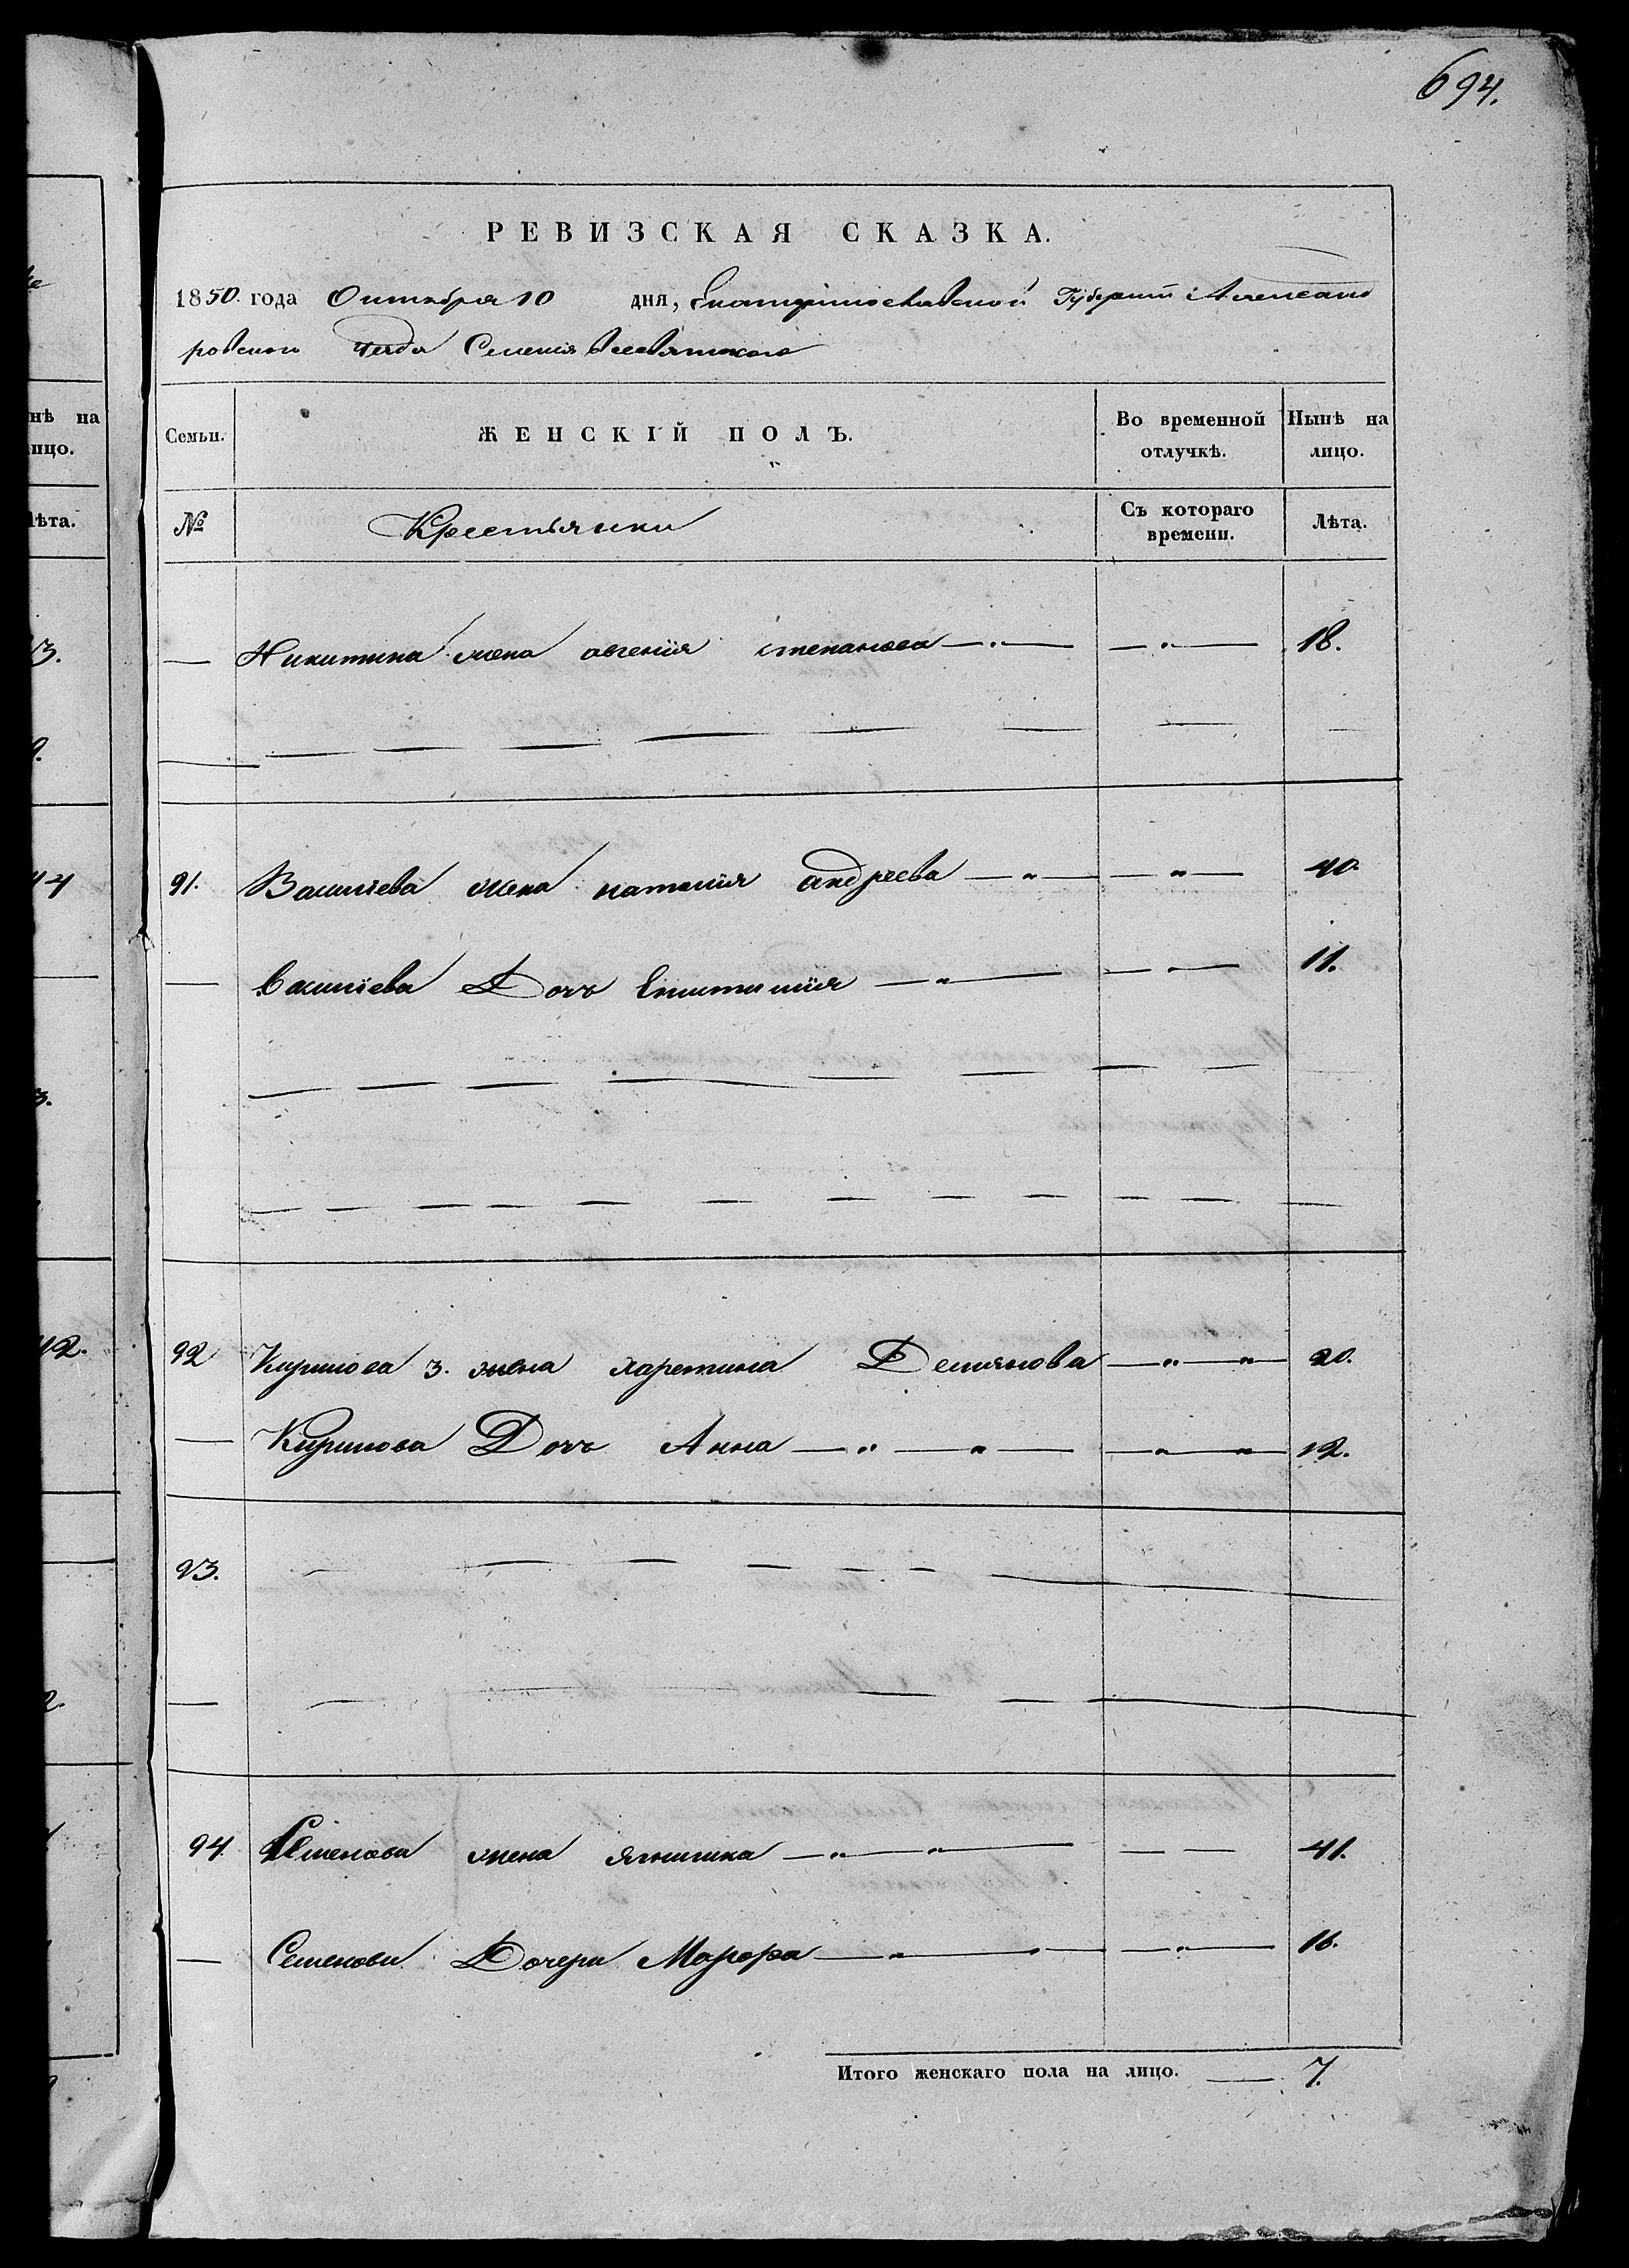 694.
РЕВИЗСКАЯ СКАЗКА.
1850 года Октября 10 дня, Екатеринославской Губернии Александ
ровскаго Уезда Селения Всесвятскаго
нѣ на
ицо.
Семьи. ЖЕНСКІЙ ПОЛЪ. Во временной Нынѣ на
отлучкѣ. лицо.
лѣта. № Крестьянки Съ котораго Лѣта.
времени.
3. — Никитина жена степанова — " — — " — 18.
44 91. Василіева жена наталия андреева — " — — " — 40.
— Василіева Дочь — " — — " — 11.
42. 92 Кирилова 3. жена харетина Демянова — " — " — 20.
— Кирилова Дочь Анна — " — " — — " — " — 12.
93.
94. Семенова жена — " — " — — — 41.
— Семенови Дочери Марфа — " — " — — " — 16.
Итого женскаго пола на лицо. — 7.